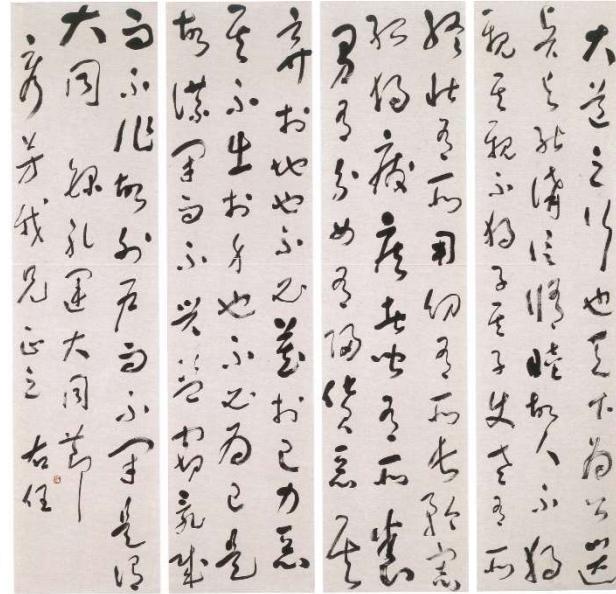 大道之行也天下為公選
賢與能講信脩睦故人不獨
親其親不獨子其子使老有所
終壯有所用幼有所長矜寡
孤獨廢疾者皆有所養
男有分女有歸貨惡其
棄於地也不必藏於己力惡
其不出於身也不必為己是
故謀閉而不興盜竊亂賊
而不作故外戶而不閉是謂
大同 錄礼運大同節
芳我兄正之 右任